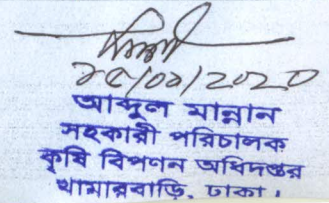 ২৫/০১/2020
আব্দুল মান্নান
সহকারী পরিচালক
কৃষি বিপণন অধিদপ্তর
খামারবাড়ি, ঢাকা।